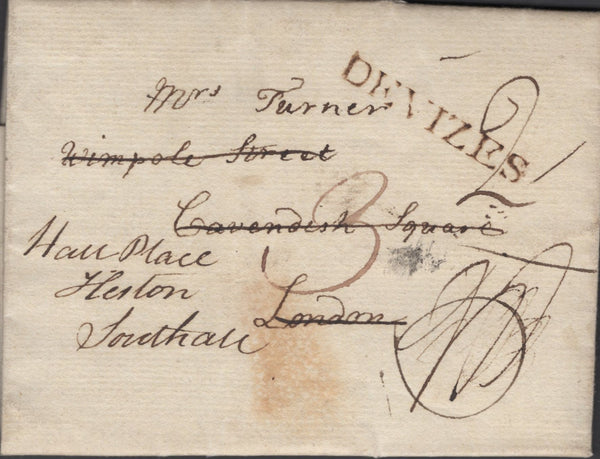 DEVIZES
Mrs Turner
Wimpole Street
Cavendish Square
London
Hall Place
Heston
Southall
3
2